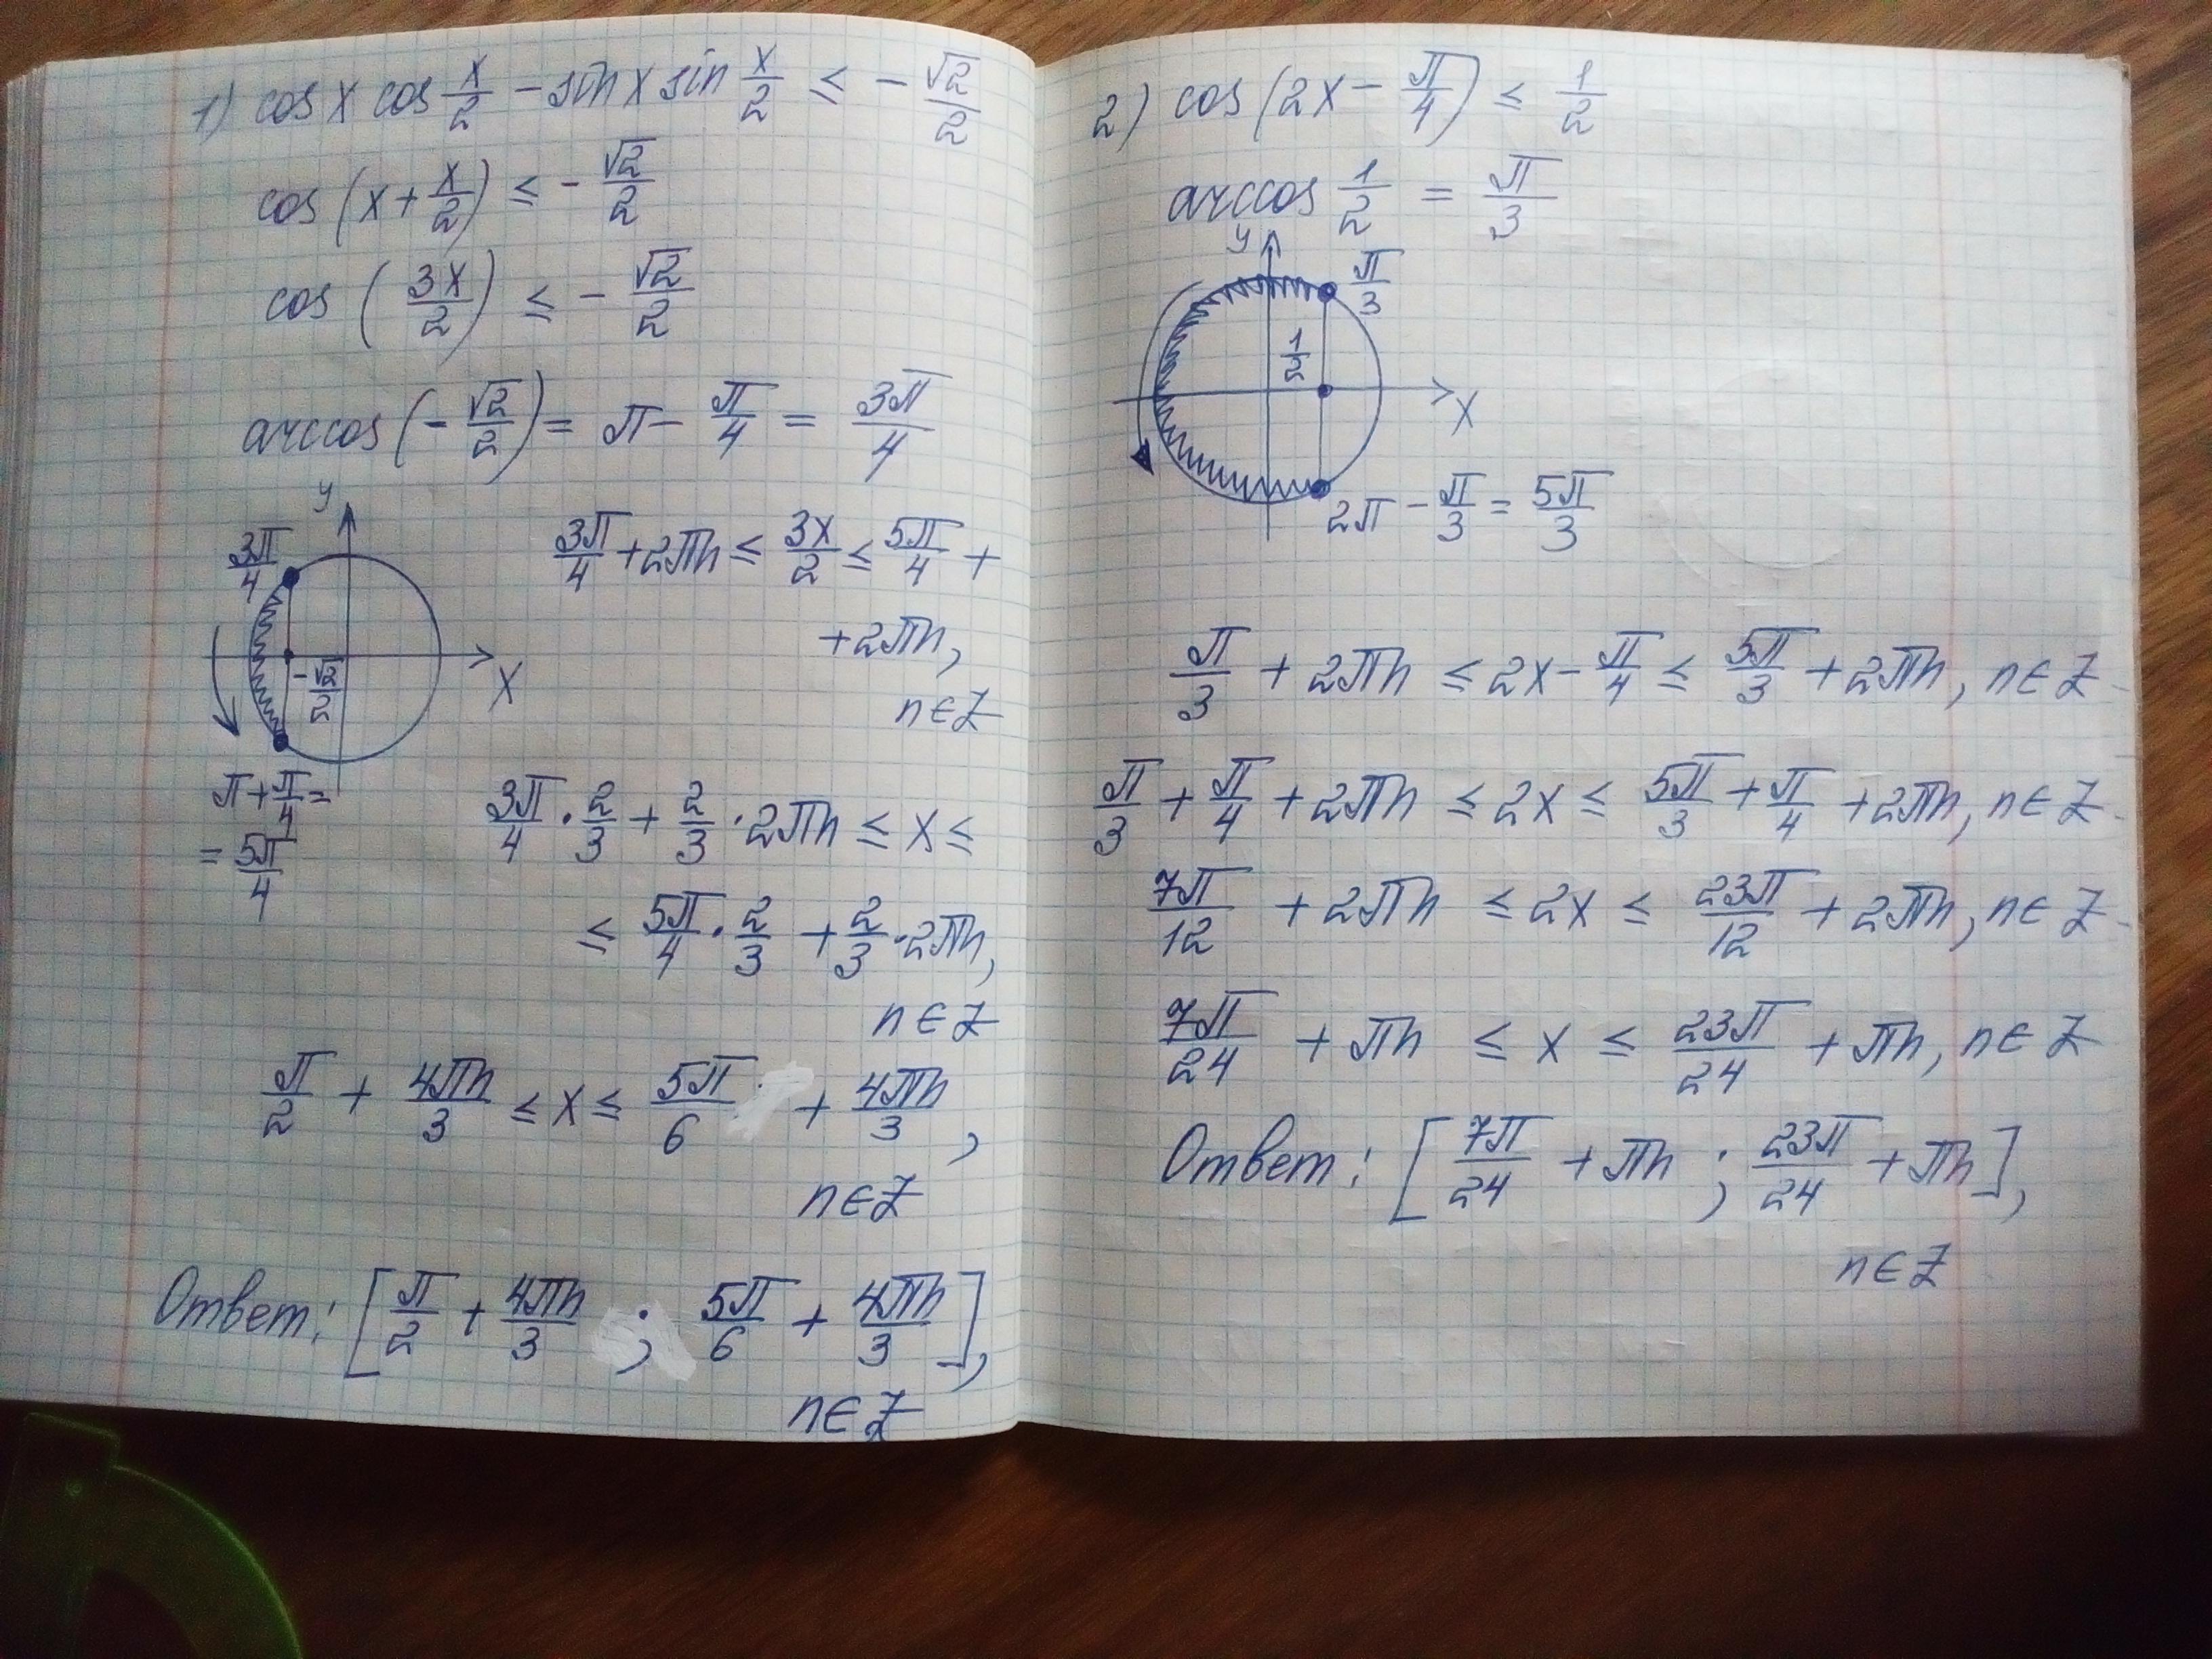 1) cos x cos x/2 − sin x sin x/2 ≤ − √2/2
cos (x + x/2) ≤ − √2/2
cos (3x/2) ≤ − √2/2
arccos (− √2/2) = π − π/4 = 3π/4
y
3π/4
x
− √2/2
π + π/4 =
= 5π/4
3π/4 + 2πn ≤ 3x/2 ≤ 5π/4 +
+ 2πn,
n ∈ Z
3π/4 · 2/3 + 2/3 · 2πn ≤ x ≤
≤ 5π/4 · 2/3 + 2/3 · 2πn,
n ∈ Z
π/2 + 4πn/3 ≤ x ≤ 5π/6 + 4πn/3,
n ∈ Z
Ответ: [π/2 + 4πn/3 ; 5π/6 + 4πn/3],
n ∈ Z
2) cos (2x − π/4) ≤ 1/2
arccos 1/2 = π/3
y
π/3
1/2
x
2π − π/3 = 5π/3
π/3 + 2πn ≤ 2x − π/4 ≤ 5π/3 + 2πn, n ∈ Z
π/3 + π/4 + 2πn ≤ 2x ≤ 5π/3 + π/4 + 2πn, n ∈ Z
7π/12 + 2πn ≤ 2x ≤ 23π/12 + 2πn, n ∈ Z
7π/24 + πn ≤ x ≤ 23π/24 + πn, n ∈ Z
Ответ: [7π/24 + πn ; 23π/24 + πn],
n ∈ Z